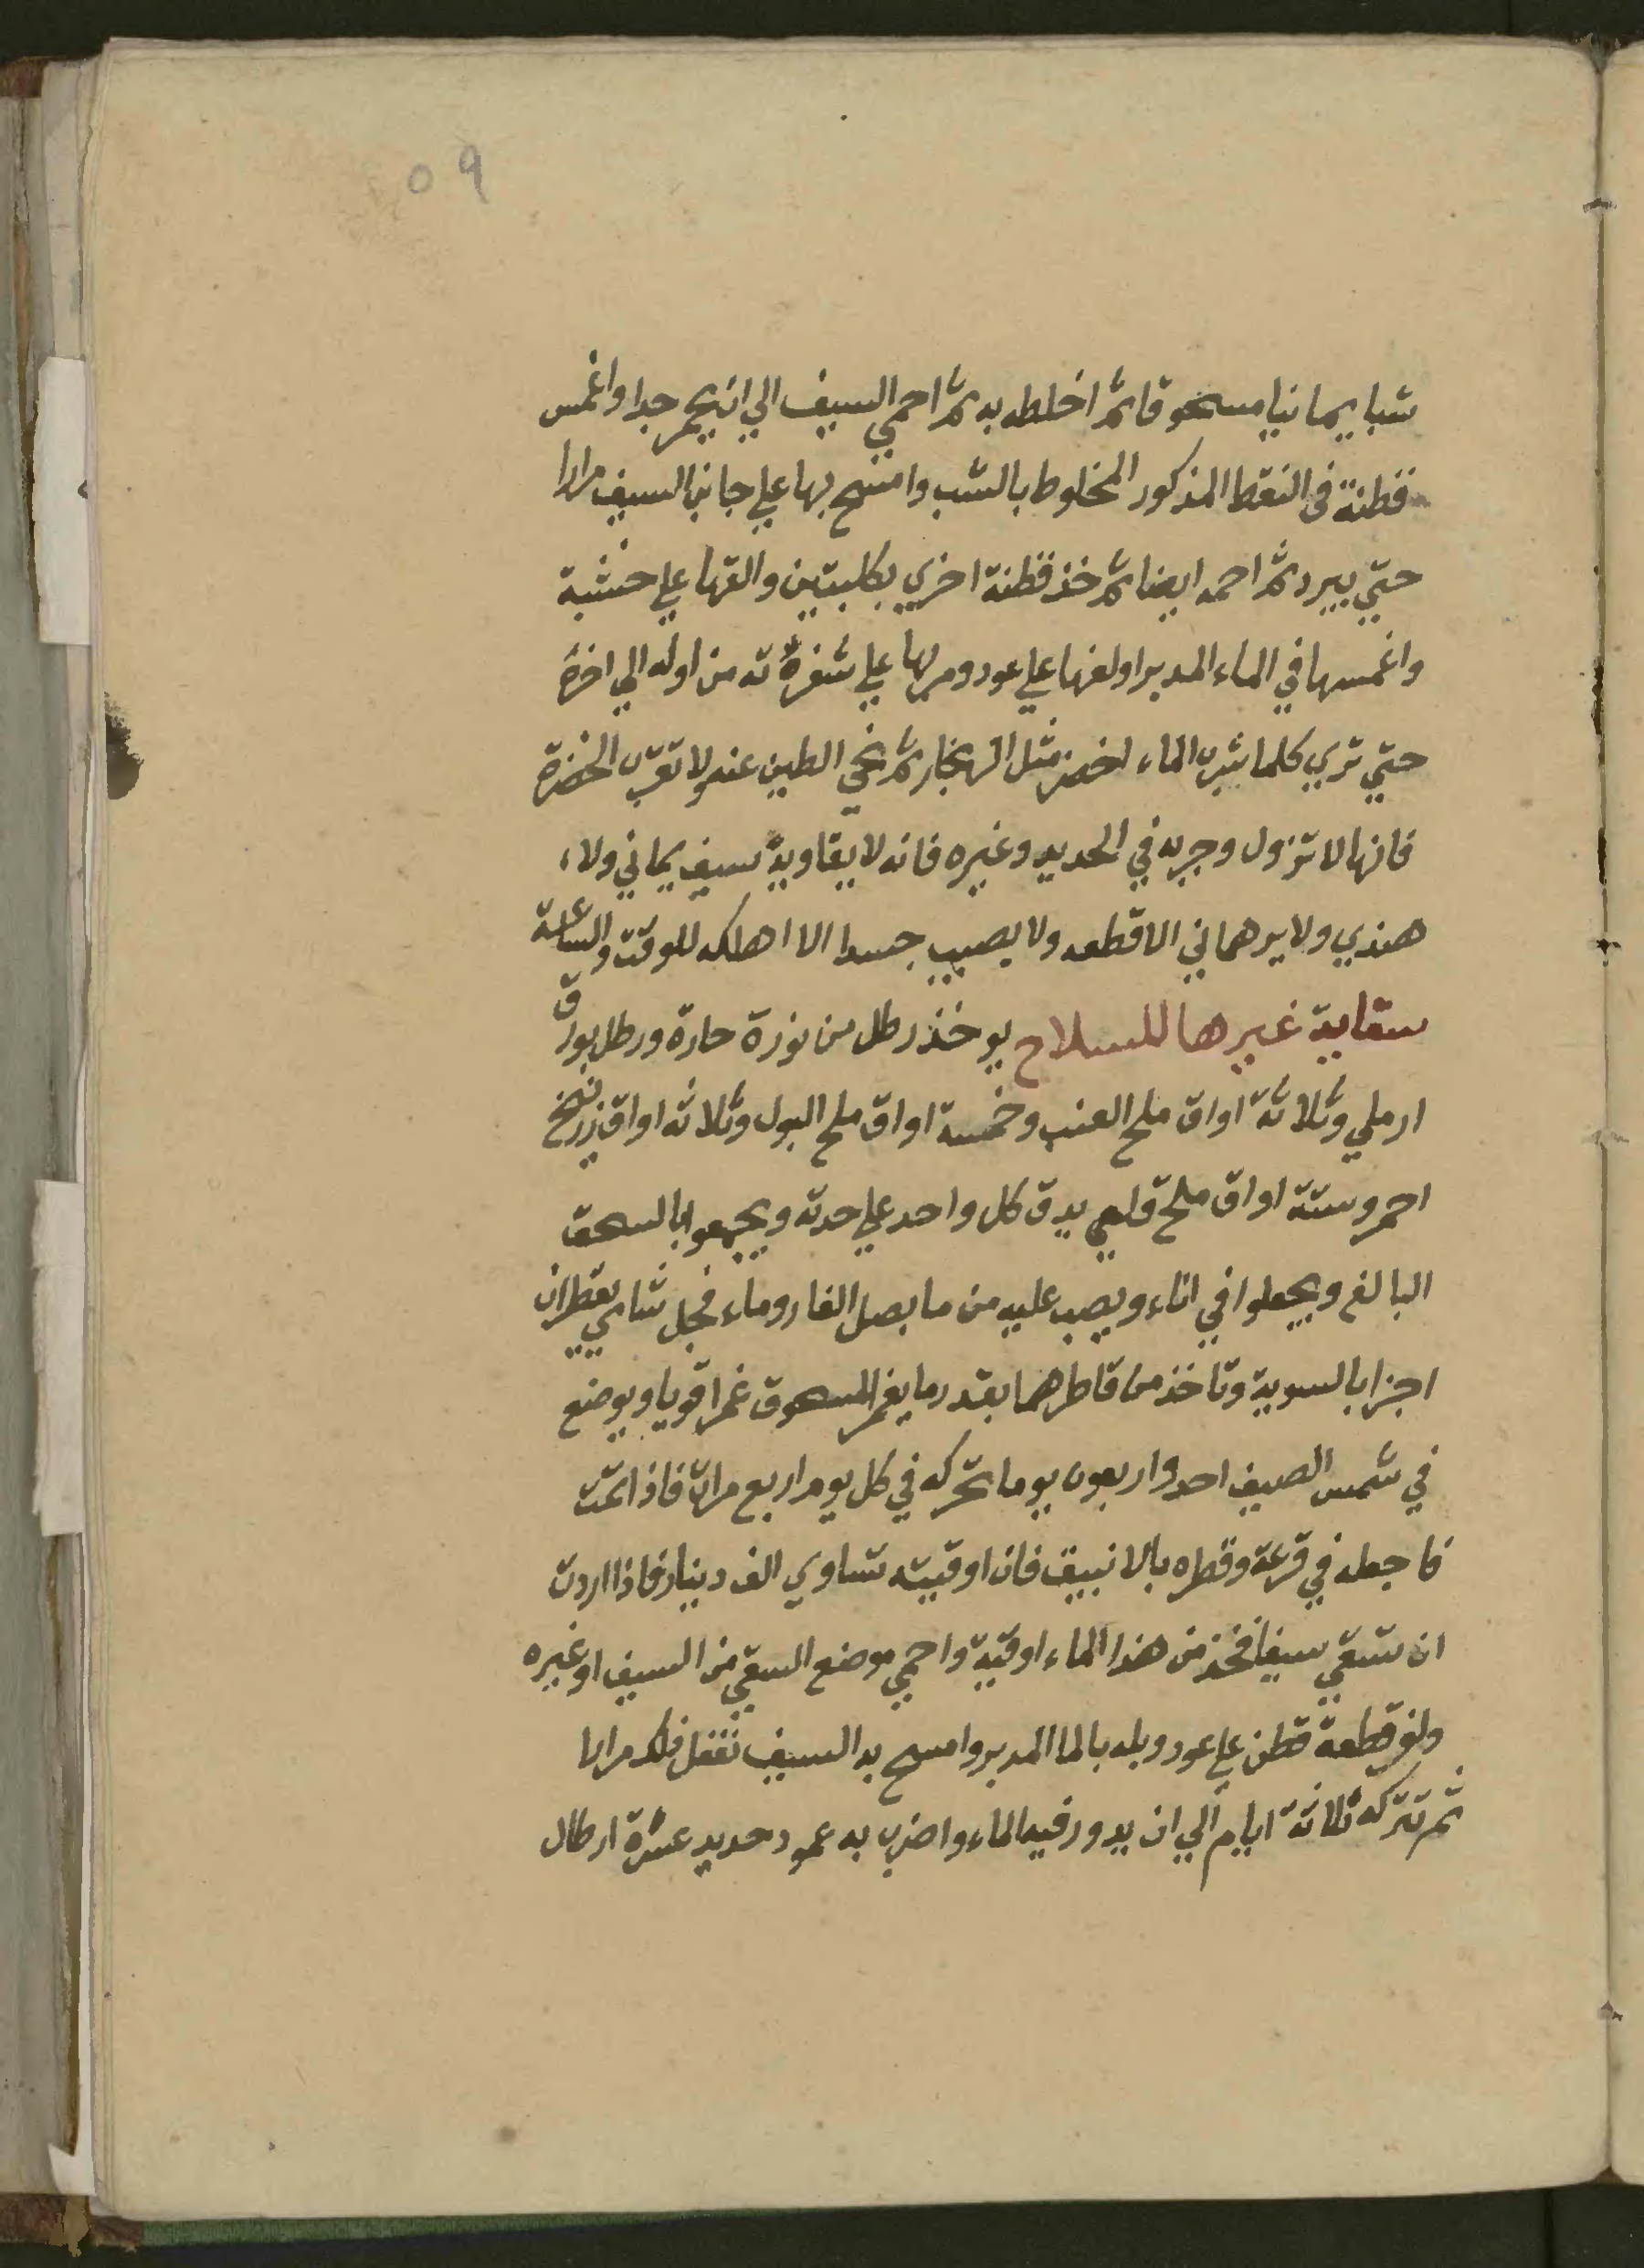 ٥٩
شبا يمانيا مسحوقا ثم اخلطه به ثم احمي السيف الي ان يحمر جدا واغمس
قطنة في النفط المذكور المخلوط بالشب وامسح بها علي جانبي السيف مرارا
حتي يبرد ثم احمه ايضا ثم خذ قطنة اخري بكلبتين والقها علي خشبة
واغمسها في الماء المدبر اولفها علي عود ومر بها علي شفرته من اوله الي اخره
حتي تري كلما شرب الماء اخضر مثل الزنجار ثم نحي الطين عنه ولا تقرب الخضرة
فانها لا تزول وجربه في الحديد وغيره فانه لا يقاويه سيف يماني ولا
هندي ولا برهماني الا قطعه ولا يصيب جسدا الا اهلكه للوقت والساعة
سقاية غيرها للسلاح يوخذ رطل من نورة حارة ورطل بورق
ارملي وثلاثة اواق ملح العنب وخمسة اواق ملح البول وثلاثه اواق زرنيخ
احمر وستة اواق ملح قلي يدق كل واحد علي حدته ويجمعوا بالسحق
البالغ ويجعلوا في اناء ويصب عليه من ما بصل الفار وماء فجل شامي يقطران
اجزا بالسوية وتاخذ من قاطرهما بقدر ما يغمر المسحوق غمرا قويا ويوضع
في شمس الصيف احد واربعون يوما تحركه في كل يوم اربع مرات فاذا تمت
فاجعله في قرعة وقطره بالانبيق فان اوقيته تساوي الف دينار فاذا اردت
ان تسقي سيفا فخذ من هذا الماء اوقية واحمي موضع السقي من السيف او غيره
ولف قطعة قطن علي عود وبله بالما المدبر وامسح به السيف تفعل ذلك مرارا
ثم تتركه ثلاثة ايام الي ان يدور فيه الماء واضرب به عمود حديد عشرة ارطال